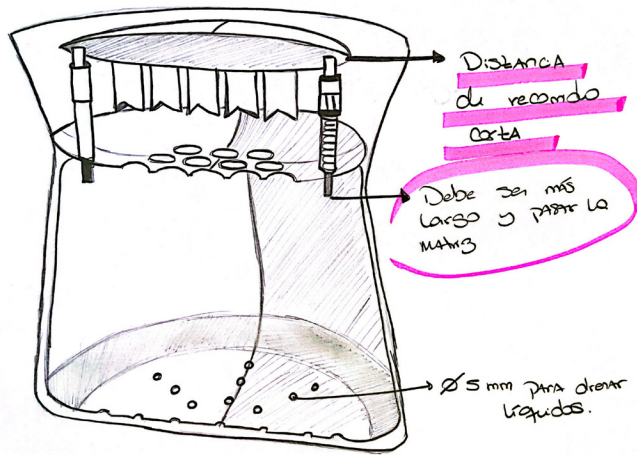 Distancia
de recorrido
corta
Debe ser más
largo y pasar la
matriz
Ø 5 mm para drenar
líquidos.